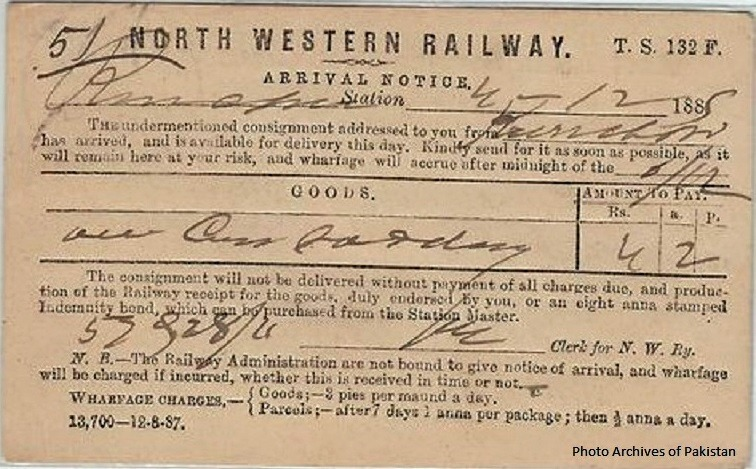 51
NORTH WESTERN RAILWAY. T. S. 132 F.
ARRIVAL NOTICE.
Station 4-12 1885
THE undermentioned consignment addressed to you from
has arrived, and is available for delivery this day. Kindly send for it as soon as possible, as it
will remain here at your risk, and wharfage will accrue after midnight of the
GOODS. AMOUNT TO PAY.
Rs. a. P.
4 2
The consignment will not be delivered without payment of all charges due, and produc-
tion of the Railway receipt for the goods, duly endorsed by you, or an eight anna stamped
Indemnity bond, which can be purchased from the Station Master.
Clerk for N. W. Ry.
N. B.—The Railway Administration are not bound to give notice of arrival, and wharfage
will be charged if incurred, whether this is received in time or not.
WHARFAGE CHARGES,— { Goods;—3 pies per maund a day.
Parcels;—after 7 days 1 anna per package; then ½ anna a day.
13,700—12-8-87.
Photo Archives of Pakistan